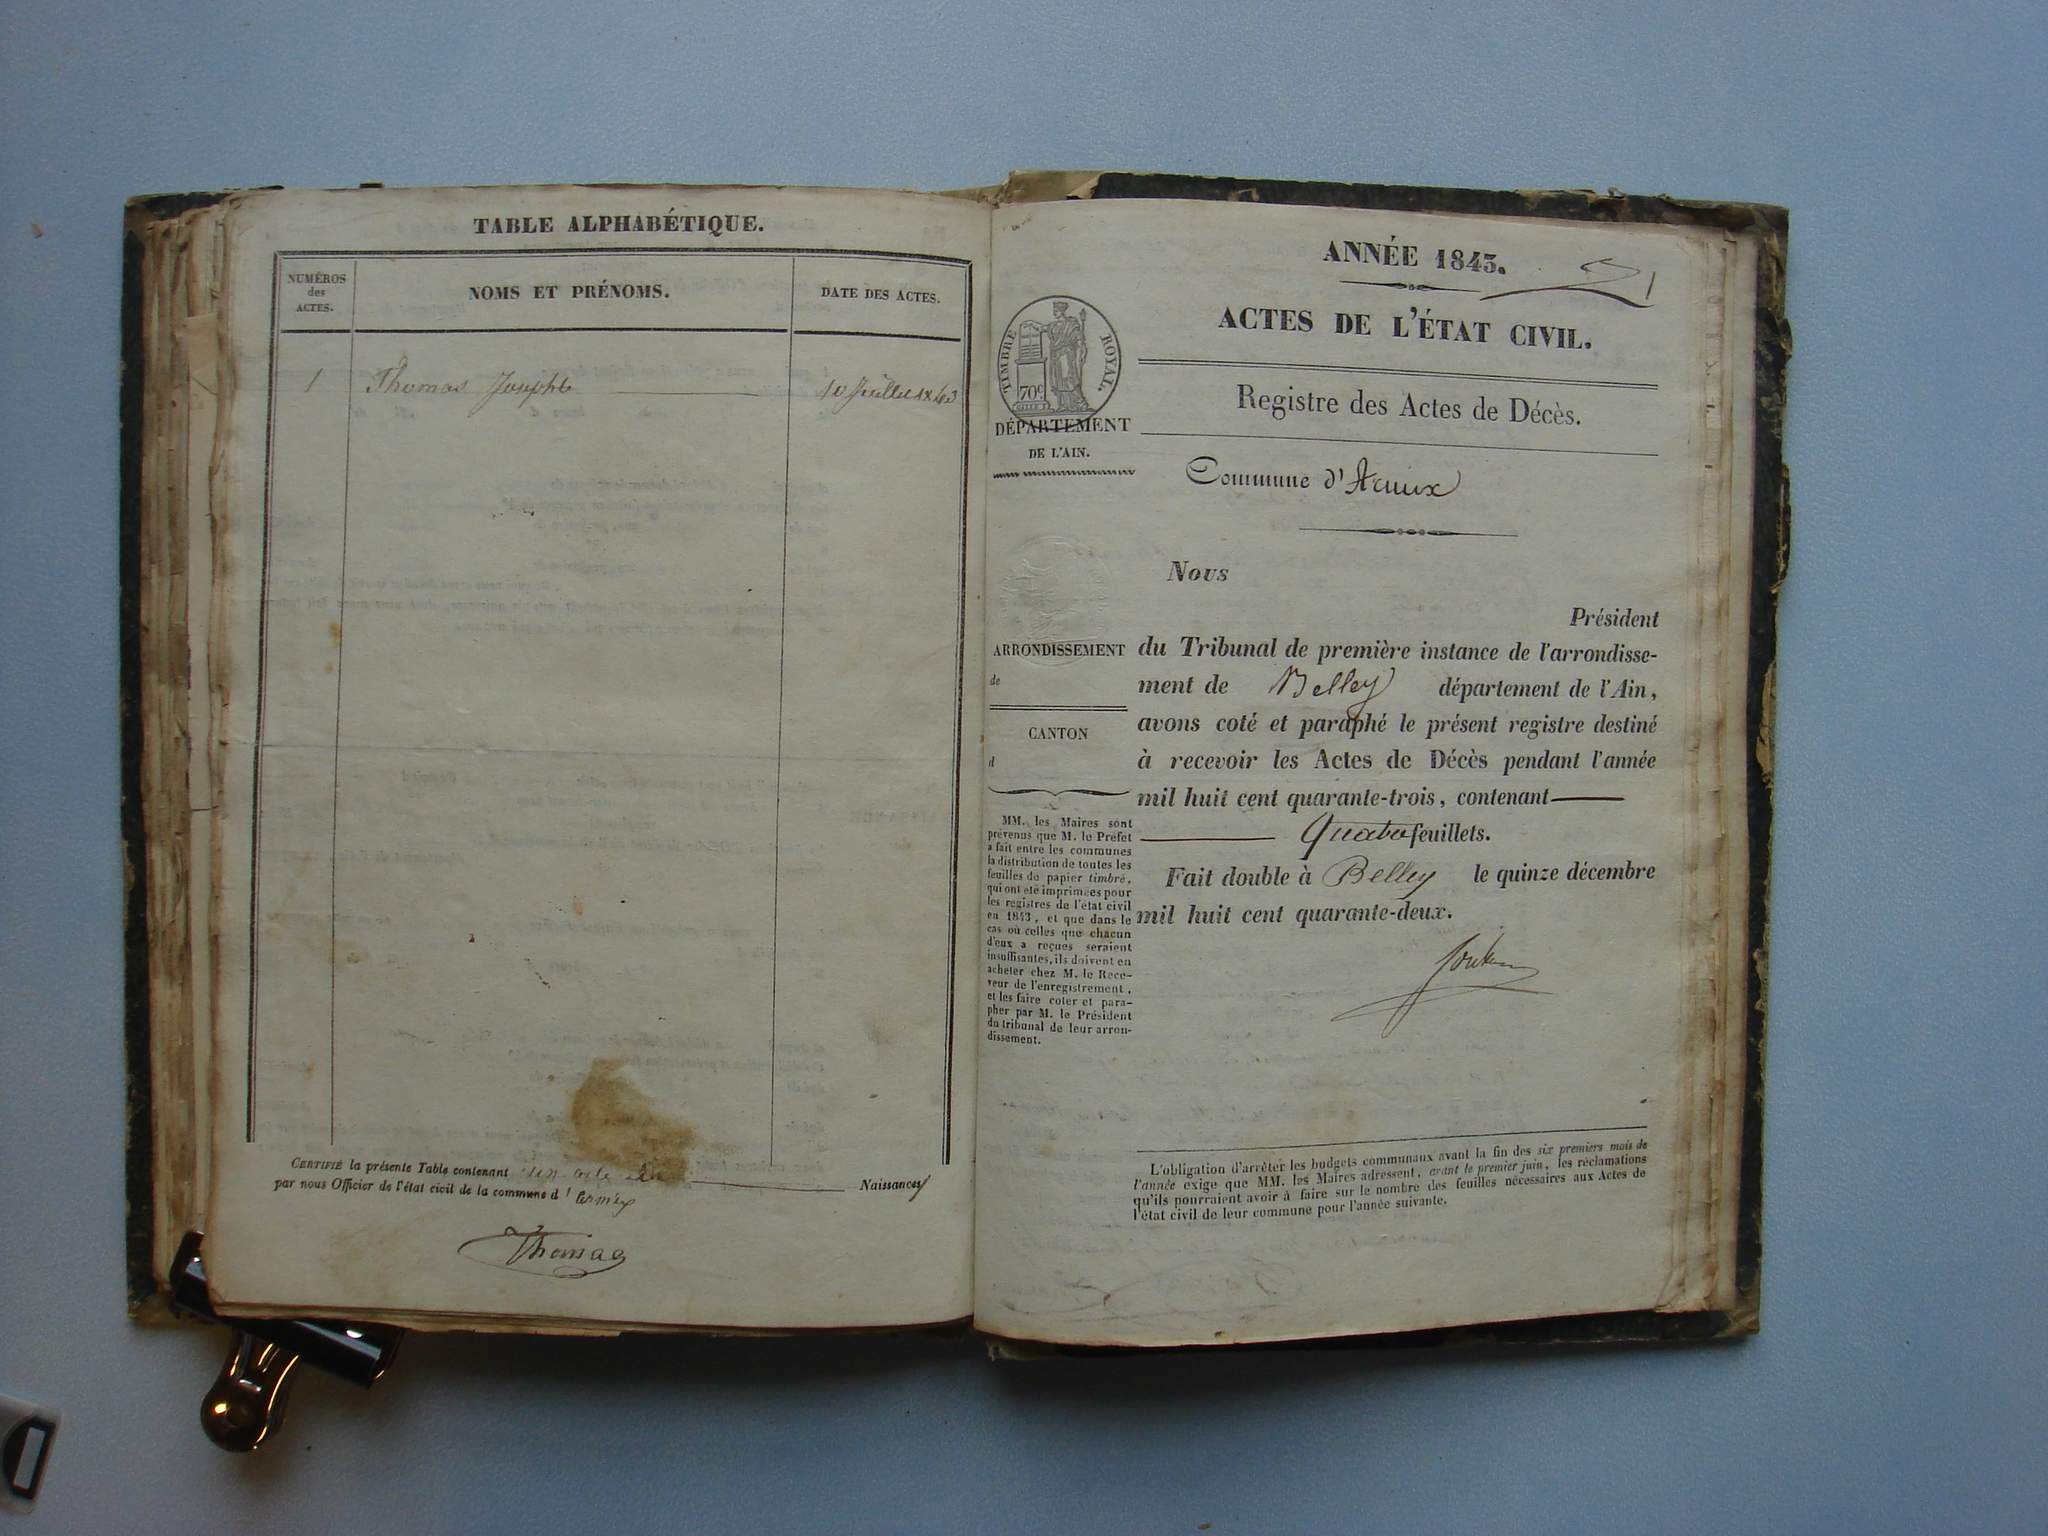 TABLE ALPHABÉTIQUE.
NUMÉROS
des
ACTES.
NOMS ET PRÉNOMS.
DATE DES ACTES.
1 Thomas Josephte 10 Juillet 1843
CERTIFIÉ la présente Table contenant un acte de Naissances
par nous Officier de l'état civil de la commune d'
Thomas
ANNÉE 1843.
1
ACTES DE L'ÉTAT CIVIL.
TIMBRE ROYAL.
70c
Registre des Actes de Décès.
DÉPARTEMENT
DE L'AIN.
Commune d'
Nous
Président
ARRONDISSEMENT
de
CANTON
d
du Tribunal de première instance de l'arrondisse-
ment de Belley département de l'Ain,
avons coté et paraphé le présent registre destiné
à recevoir les Actes de Décès pendant l'année
mil huit cent quarante-trois, contenant
Quatre feuillets.
Fait double à Belley le quinze décembre
mil huit cent quarante-deux.
MM. les Maires sont
prévenus que M. le Préfet
a fait entre les communes
la distribution de toutes les
feuilles de papier timbré,
qui ont été imprimées pour
les registres de l'état civil
en 1843, et que dans le
cas où celles que chacun
d'eux a reçues seraient
insuffisantes, ils doivent en
acheter chez M. le Rece-
veur de l'enregistrement,
et les faire coter et para-
pher par M. le Président
du tribunal de leur arron-
dissement.
L'obligation d'arrêter les budgets communaux avant la fin des six premiers mois de
l'année exige que MM. les Maires adressent, avant le premier juin, les réclamations
qu'ils pourraient avoir à faire sur le nombre des feuilles nécessaires aux Actes de
l'état civil de leur commune pour l'année suivante.